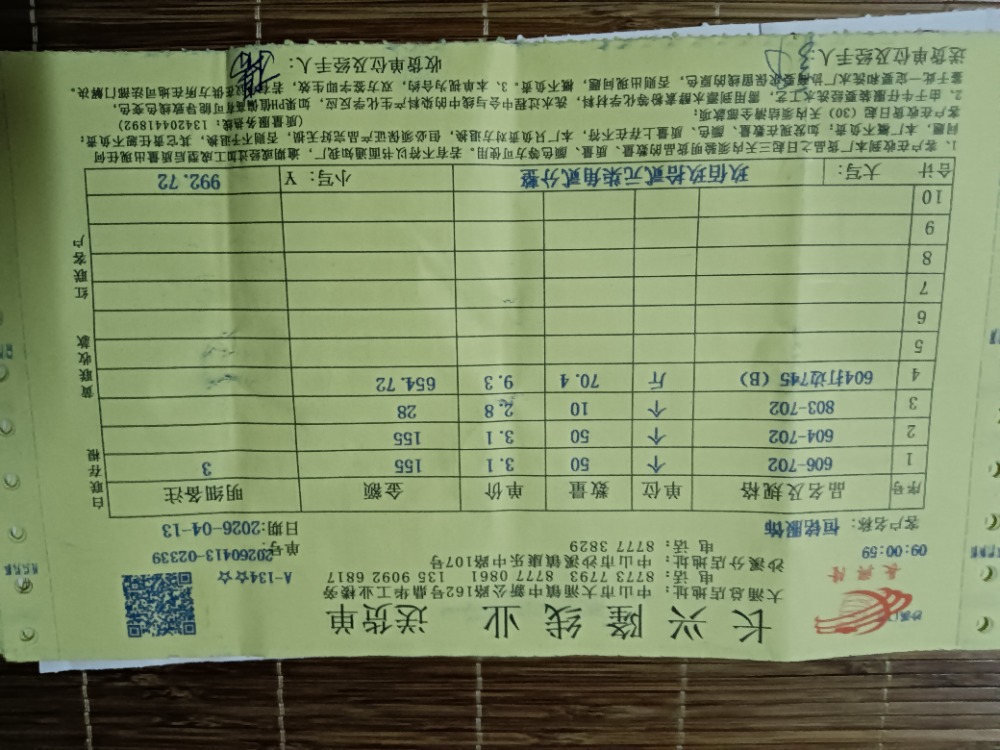 长兴隆线业 送货单
大涌总店地址：中山市大涌镇中新公路162号华鼎楼旁
电话：8773 7793 8777 0861 135 9092 6817
A-134☆☆
沙溪分店地址：中山市沙溪镇康乐中路107号
电话：8777 3829
单号：20260413-02339
09:00:59
客户名称：恒铭服饰
日期:2026-04-13
序号 品名及规格 单位 数量 单价 金额 明细备注
1 606-702 个 50 3.1 155 3
2 604-702 个 50 3.1 155
3 803-702 个 10 2.8 28
4 604打边745（B） 斤 70.4 9.3 654.72
5
6
7
8
9
10
合计 大写： 玖佰玖拾贰元柒角贰分整 小写：￥ 992.72
白联存根
黄联收款
红联客户
1、客户在收到本厂货品之日起三天内须验明货品的数量、质量、颜色等方可使用。若有不符以书面通知我厂，逾期或经过加工成型后质量出现任何
问题，本厂概不负责。如发现在数量、颜色、质量上存在不符，本厂只负责对方退换，但必须保证产品完好无损，否则不予退换，其它责任概不负责；
客户在收货日起（30）天内须结清全部款项；
（质量服务热线：13420441892）
2、由于牛仔服装要经洗水工艺，需用到漂水酵素粉等化学材料，洗水过程中会与线中的染料产生化学反应，如果PH值偏高有可能导致线色变色，
鉴于此一定要和洗水厂协商要求保留线的原色，否则出现问题，概不负责。3、本单视为合约，双方签字即生效，若有争议在供方所在地司法部门解决。
送货单位及经手人：
收货单位及经手人：